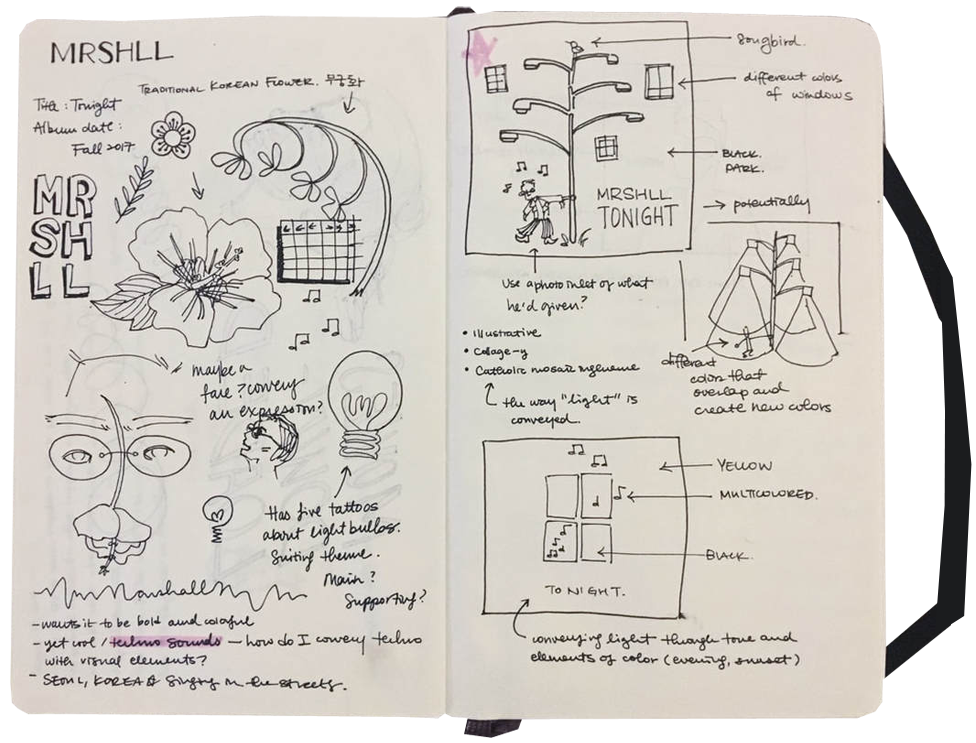 MRSHLL
TRADITIONAL KOREAN FLOWER. 무궁화
Title: Tonight
Album date:
Fall 2017
MR
SH
LL
maybe a
face? convey
an expression?
Has five tattoos
about light bulbs.
Suiting theme.
Main?
Supporting?
Mr. Marshall
- wants it to be bold and colorful
- yet cool / techno sounds — how do I convey techno
with visual elements?
- SEOUL, KOREA & Singing in the streets.
Songbird.
different colors
of windows
BLACK.
DARK.
MRSHLL
TONIGHT
→ potentially
Use a photo inlet of what
he'd given?
• Illustrative
• Collage-y
• Catholic mosaic influence
the way "light" is
conveyed.
different
colors that
overlap and
create new colors
YELLOW
MULTICOLORED.
BLACK.
TONIGHT.
conveying light through tone and
elements of color (evening, sunset)